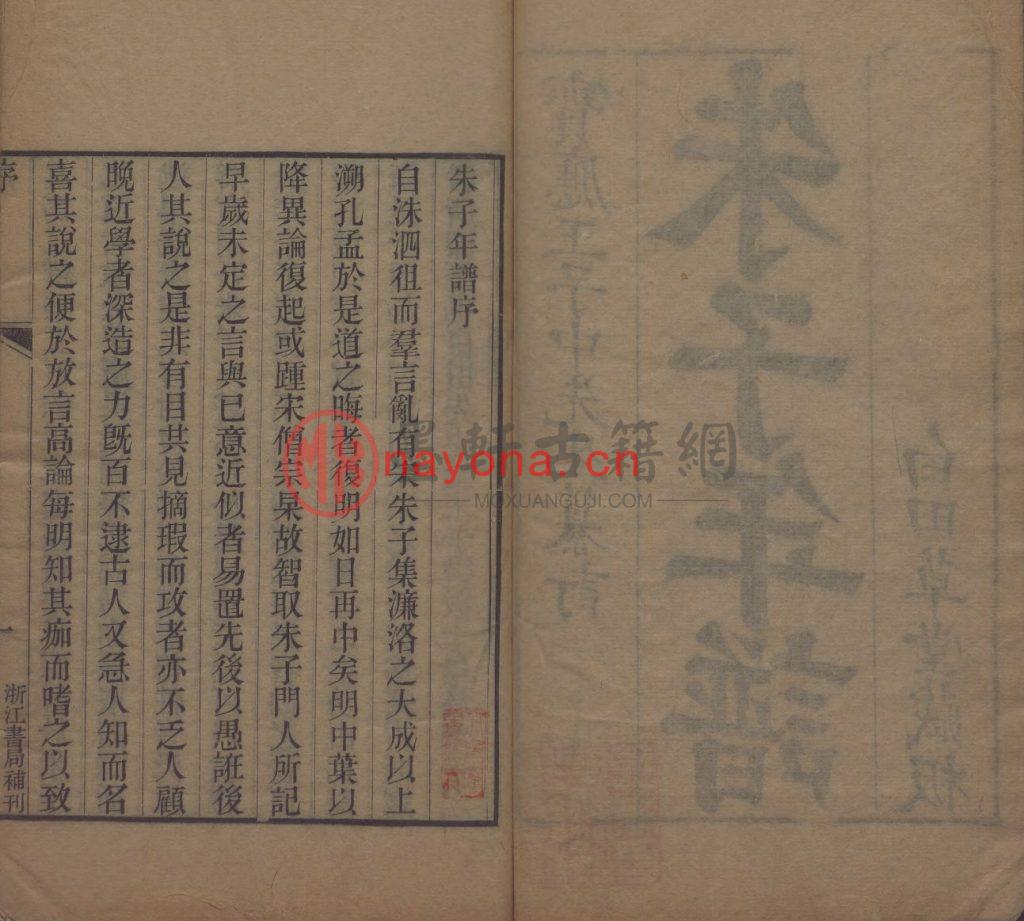 朱子年譜
白田草堂藏板
朱子年譜序
自洙泗徂而羣言亂有宋朱子集濂洛之大成以上
溯孔孟於是道之晦者復明如日再中矣明中葉以
降異論復起或踵宋僧宗杲故智取朱子門人所記
早歲未定之言與已意近似者易置先後以愚誑後
人其說之是非有目共見摘瑕而攻者亦不乏人顧
晚近學者深造之力旣百不逮古人又急人知而名
喜其說之便於放言高論每明知其痂而嗜之以致
序
一
浙江書局補刊
墨軒古籍網
nayona.cn
MOXUANGUJI.COM